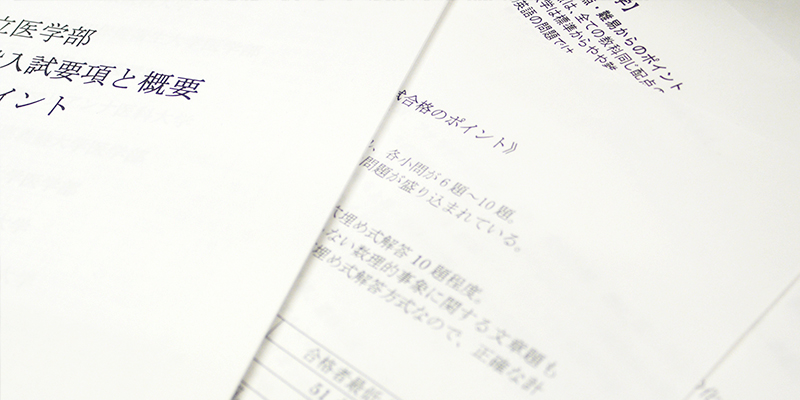 立医学部
入試要項と概要
イント
学】
・難易からのポイント
は、全ての教科同じ配点
学は標準からやや難
英語の問題では
式合格のポイント》
、各小問が6題～10題。
問題が盛り込まれている。
穴埋め式解答10題程度。
ない数理的事象に関する文章題も
埋め式解答方式なので、正確な計
合格者最低
51